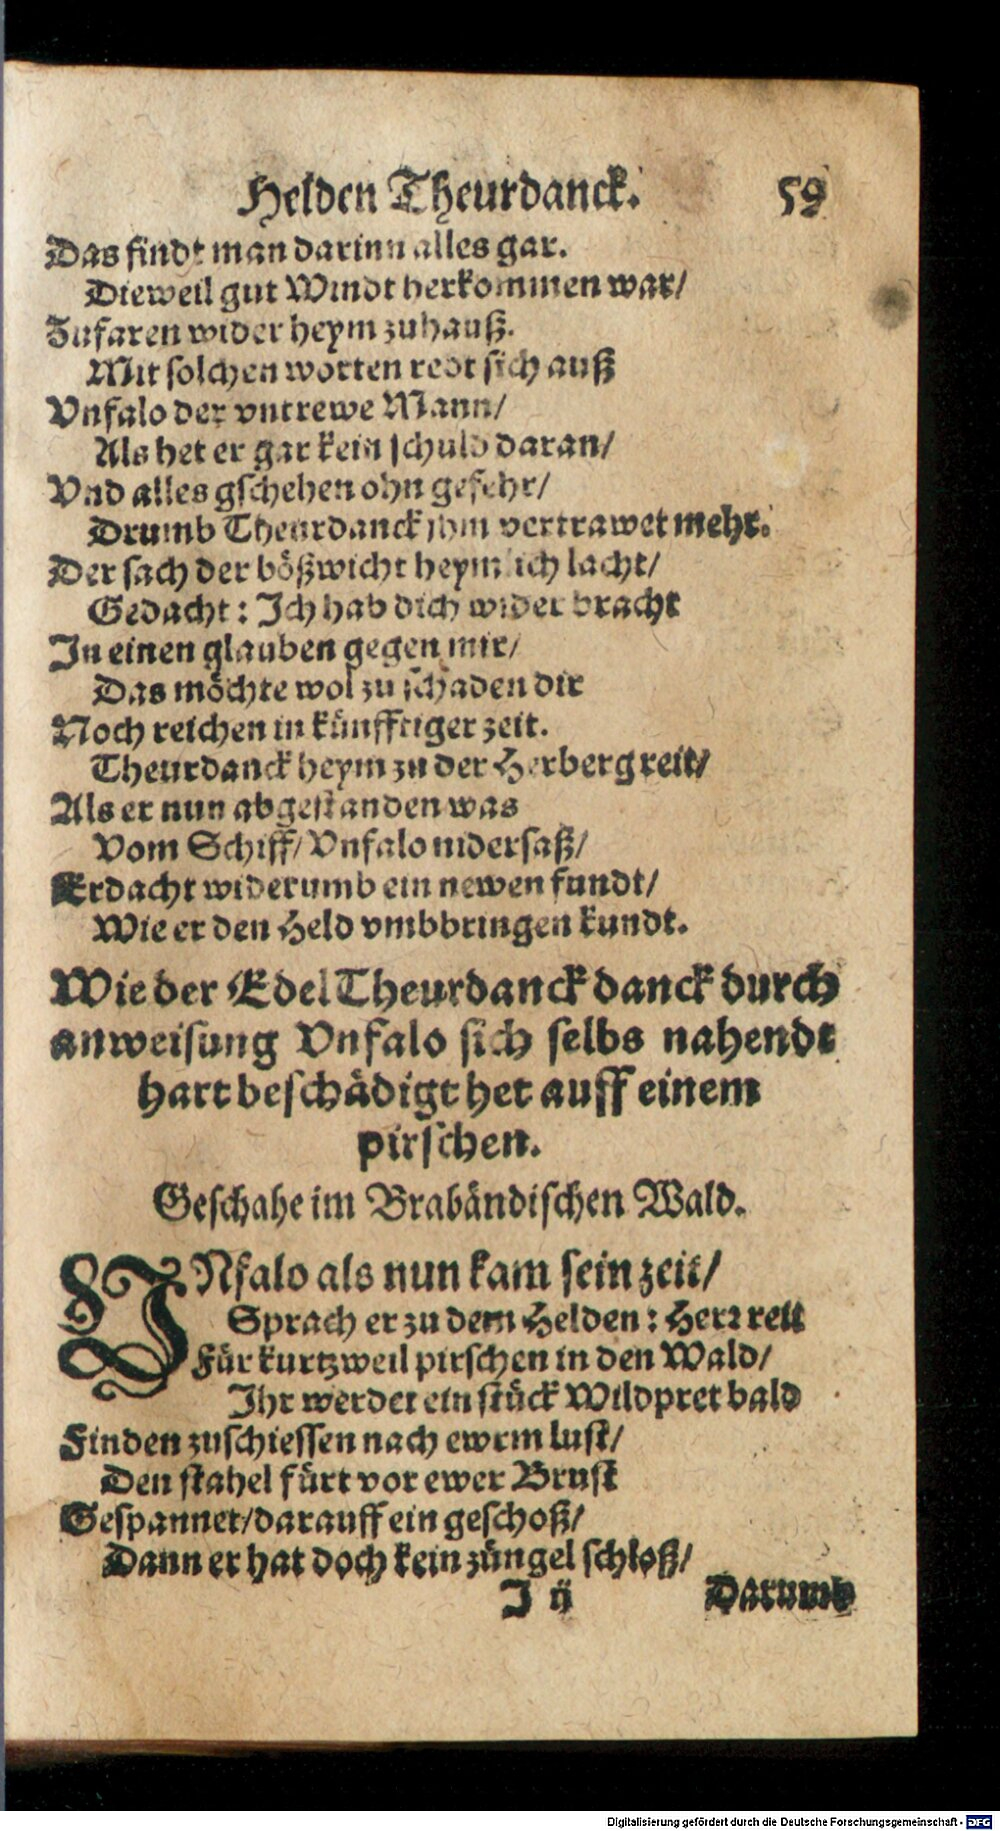 Helden Theurdanck. 59
Das findt man darinn alles gar.
Dieweil gut Windt herkommen war/
Zufaren wider heym zuhauß.
Mit solchen worten redt sich auß
Vnfalo der vntrewe Mann/
Als het er gar kein schuld daran/
Vnd alles gschehen ohn gefehr/
Drumb Theurdanck jhm vertrawet mehr.
Der sach der bößwicht heymlich lacht/
Gedacht: Ich hab dich wider bracht
In einen glauben gegen mir/
Das möchte wol zu schaden dir
Noch reichen in künfftiger zeit.
Theurdanck heym zu der Herberg reit/
Als er nun abgestanden was
Vom Schiff/ Vnfalo nidersaß/
Erdacht widerumb ein newen fundt/
Wie er den Held vmbbringen kundt.
Wie der Edel Theurdanck danck durch
anweisung Vnfalo sich selbs nahendt
hart beschädigt het auff einem
pirschen.
Geschahe im Brabändischen Wald.
VNfalo als nun kam sein zeit/
Sprach er zu dem Helden: Herr reit
Für kurtzweil pirschen in den Wald/
Ihr werdet ein stück Wildpret bald
Finden zuschiessen nach ewrm lust/
Den stahel fürt vor ewer Brust
Gespannet/ darauff ein geschoß/
Dann er hat doch kein züngel schloß/
I ij Darumb
Digitalisierung gefördert durch die Deutsche Forschungsgemeinschaft - DFG